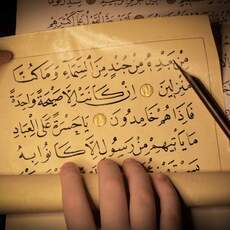 مِنْ بَعْدِهِ مِنْ جُنْدٍ مِنَ السَّمَاءِ وَمَا كُنَّا
مُنْزِلِينَ إِنْ كَانَتْ إِلَّا صَيْحَةً وَاحِدَةً
فَإِذَا هُمْ خَامِدُونَ يَا حَسْرَةً عَلَى الْعِبَادِ
مَا يَأْتِيهِمْ مِنْ رَسُولٍ إِلَّا كَانُوا بِهِ